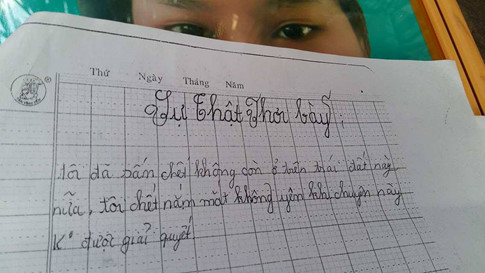 Thứ Ngày Tháng Năm
Sự thật Phơi bày
tôi đã bấn chết không còn ở trên trái đất này
nữa, tôi chết nắm mắt không yên khi chuyện này
K° được giải quyết